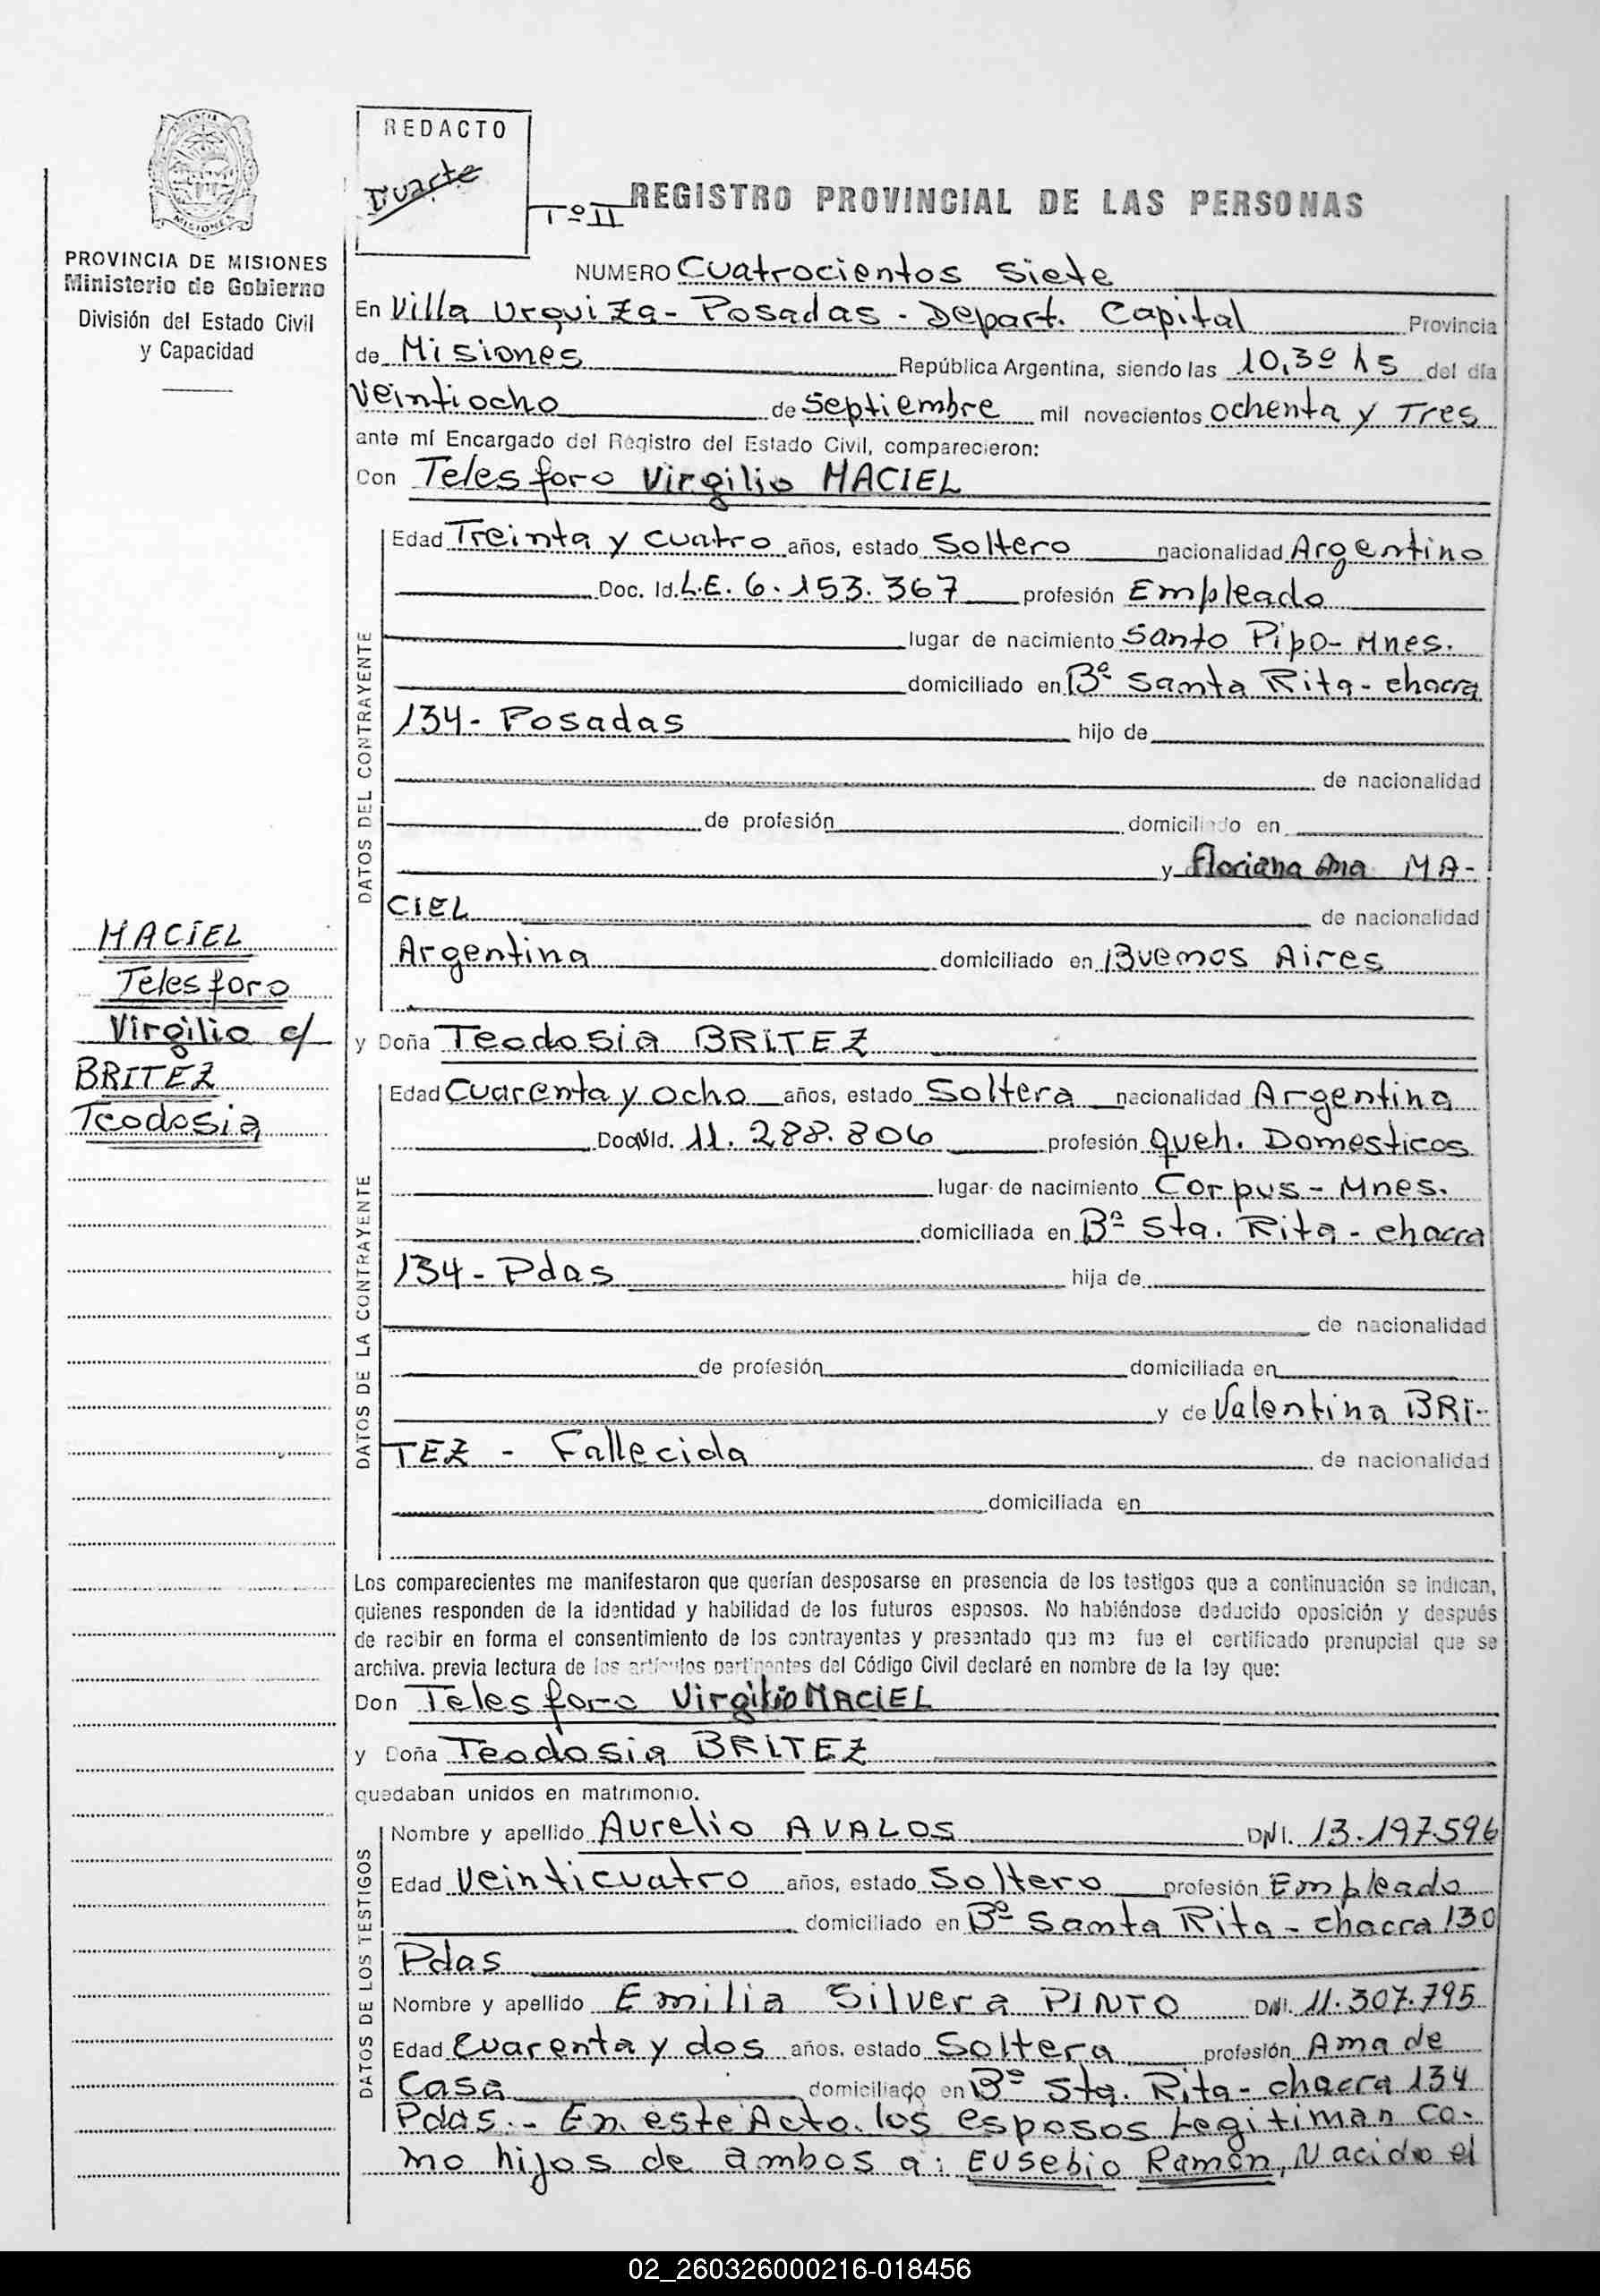 REDACTO
Duarte
Tº II
REGISTRO PROVINCIAL DE LAS PERSONAS
PROVINCIA DE MISIONES
Ministerio de Gobierno
División del Estado Civil
y Capacidad
NUMERO Cuatrocientos Siete
En Villa Urquiza - Posadas - Depart. Capital Provincia
de Misiones República Argentina, siendo las 10,30 hs del día
Veintiocho de Septiembre mil novecientos ochenta y Tres
ante mí Encargado del Registro del Estado Civil, comparecieron:
Con Telesforo Virgilio MACIEL
DATOS DEL CONTRAYENTE
Edad Treinta y cuatro años, estado Soltero nacionalidad Argentino
Doc. Id. L.E. 6.153.367 profesión Empleado
lugar de nacimiento Santo Pipo - Mnes.
domiciliado en Bº Santa Rita - chacra
134 - Posadas hijo de
de nacionalidad
de profesión domiciliado en
y Floriana Ana MA-
CIEL de nacionalidad
Argentina domiciliado en Buenos Aires
MACIEL
Telesforo
Virgilio c/
BRITEZ
Teodosia
y Doña Teodosia BRITEZ
DATOS DE LA CONTRAYENTE
Edad Cuarenta y ocho años, estado Soltera nacionalidad Argentina
Doc. Id. 11.288.806 profesión Queh. Domesticos
lugar de nacimiento Corpus - Mnes.
domiciliada en Bº Sta. Rita - chacra
134 - Pdas hija de
de nacionalidad
de profesión domiciliada en
y de Valentina BRI-
TEZ - Fallecida de nacionalidad
domiciliada en
Los comparecientes me manifestaron que querían desposarse en presencia de los testigos que a continuación se indican,
quienes responden de la identidad y habilidad de los futuros esposos. No habiéndose deducido oposición y después
de recibir en forma el consentimiento de los contrayentes y presentado que me fue el certificado prenupcial que se
archiva. previa lectura de los artículos pertinentes del Código Civil declaré en nombre de la ley que:
Don Telesforo Virgilio MACIEL
y Doña Teodosia BRITEZ
quedaban unidos en matrimonio.
DATOS DE LOS TESTIGOS
Nombre y apellido Aurelio AVALOS DNI. 13.197.596
Edad Veinticuatro años, estado Soltero profesión Empleado
domiciliado en Bº Santa Rita - chacra 130
Pdas
Nombre y apellido Emilia Silvera PINTO DNI. 11.307.795
Edad Cuarenta y dos años, estado Soltera profesión Ama de
Casa domiciliado en Bº Sta. Rita - chacra 134
Pdas. - En este Acto los esposos Legitiman co-
mo hijos de ambos a: EUSEBIO Ramón, Nacido el
02_260326000216-018456